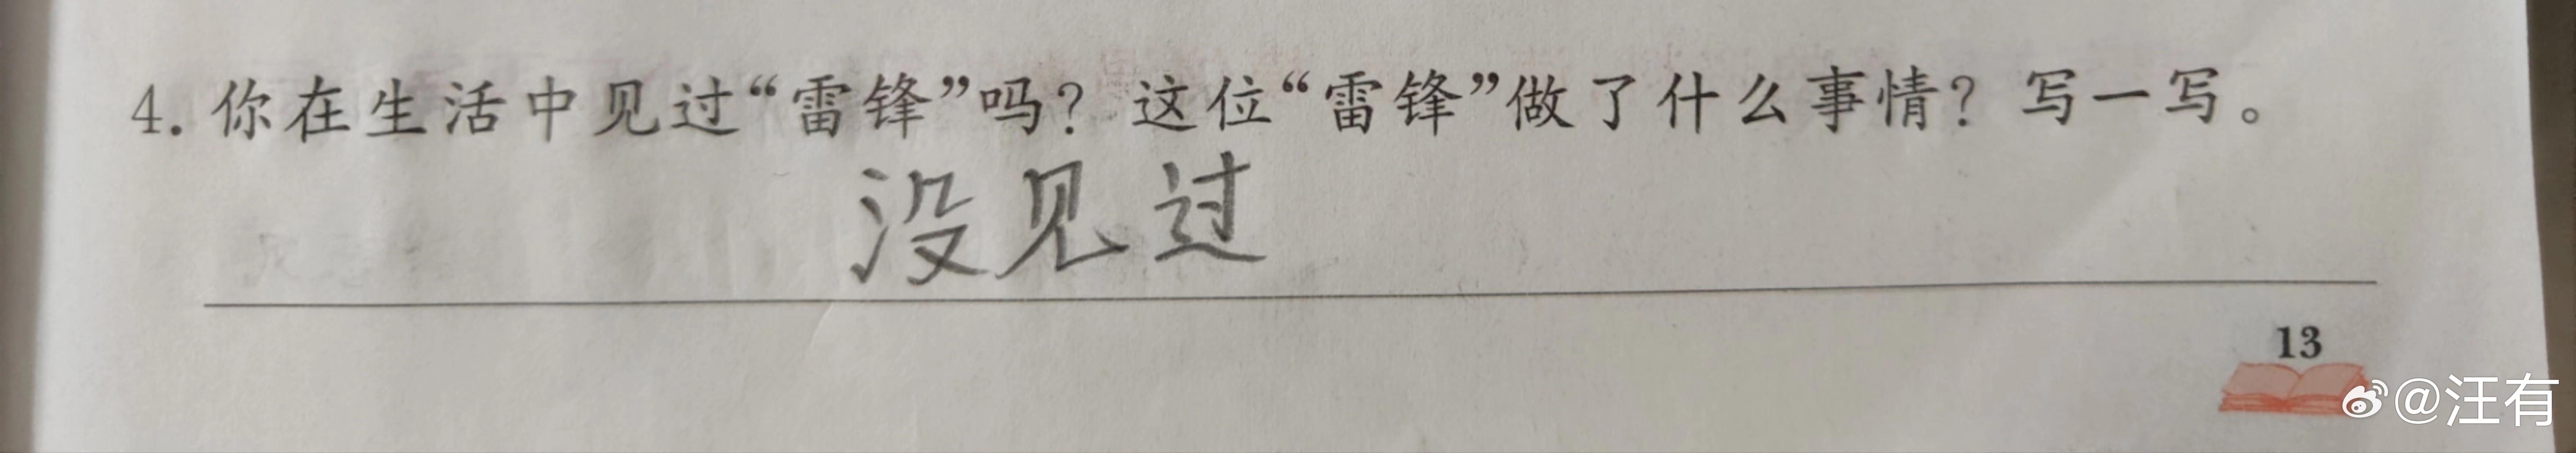 4. 你在生活中见过“雷锋”吗？这位“雷锋”做了什么事情？写一写。
没见过
13
@汪有